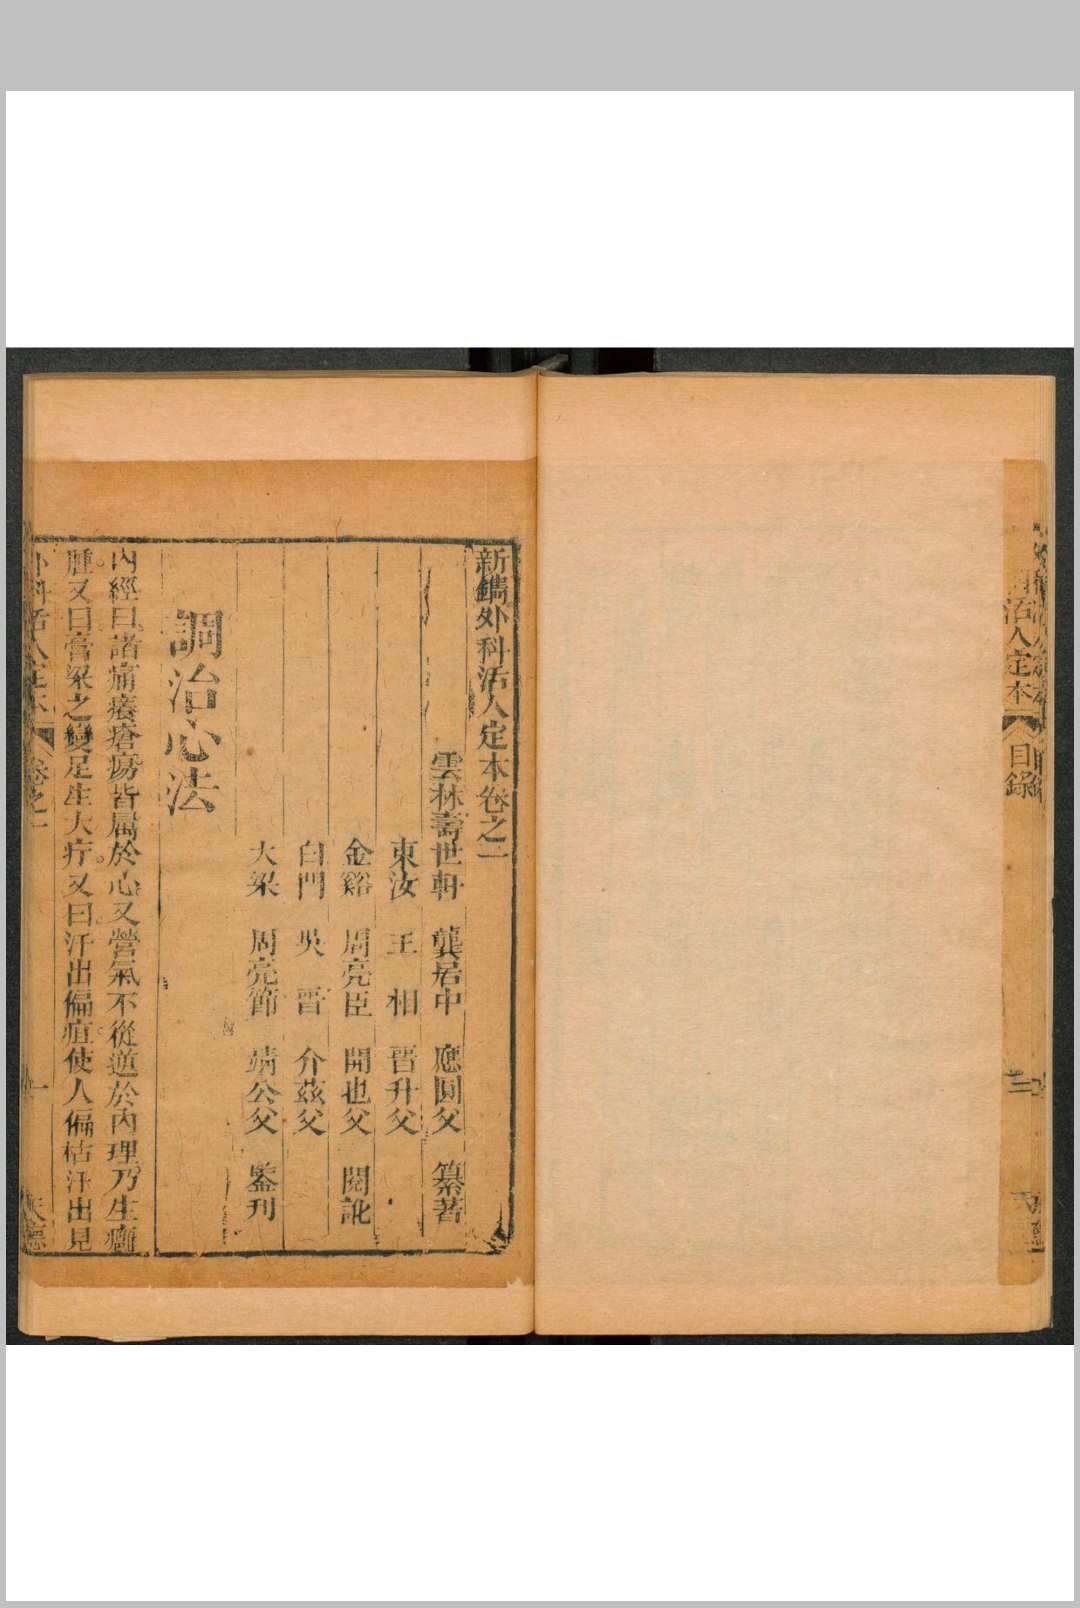 活人定本
目錄
三
新鐫外科活人定本卷之一
雲林壽世軒　龔居中　應圓父　纂著
東汝　王　相　晋升父
金谿　周亮臣　開也父　閱訛
白門　吳　晋　介茲父
大梁　周亮節　靖公父　鑒刊
調治心法
內經曰諸痛癢瘡瘍皆屬於心又營氣不從逆於肉理乃生癰
腫又曰膏梁之變足生大疔又曰汗出偏痘使人偏枯汗出見
外科活人定本
卷之一
一